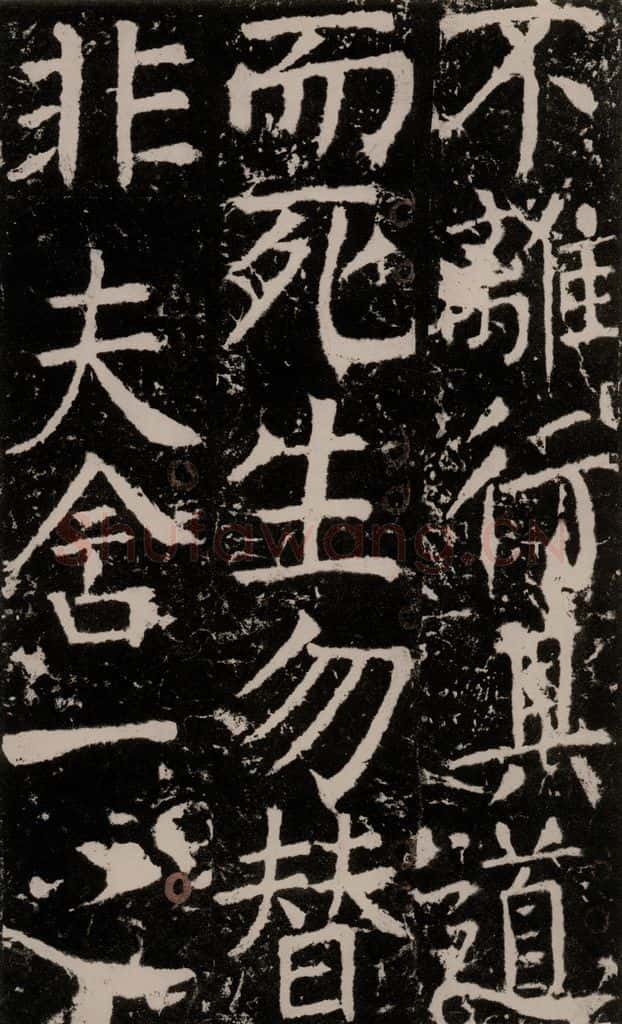 不離行其道
而死生勿替
非夫舍一
Shufawang.CN